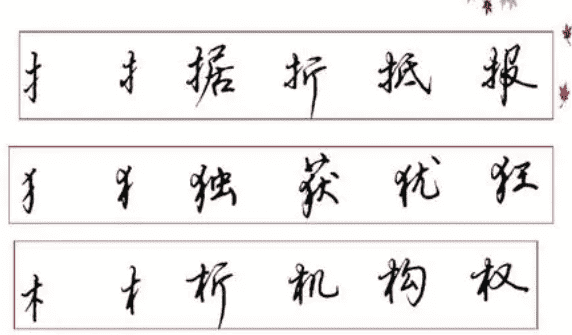 扌 扌 据 折 抵 报
犭 犭 独 获 犹 狂
木 木 析 机 构 权